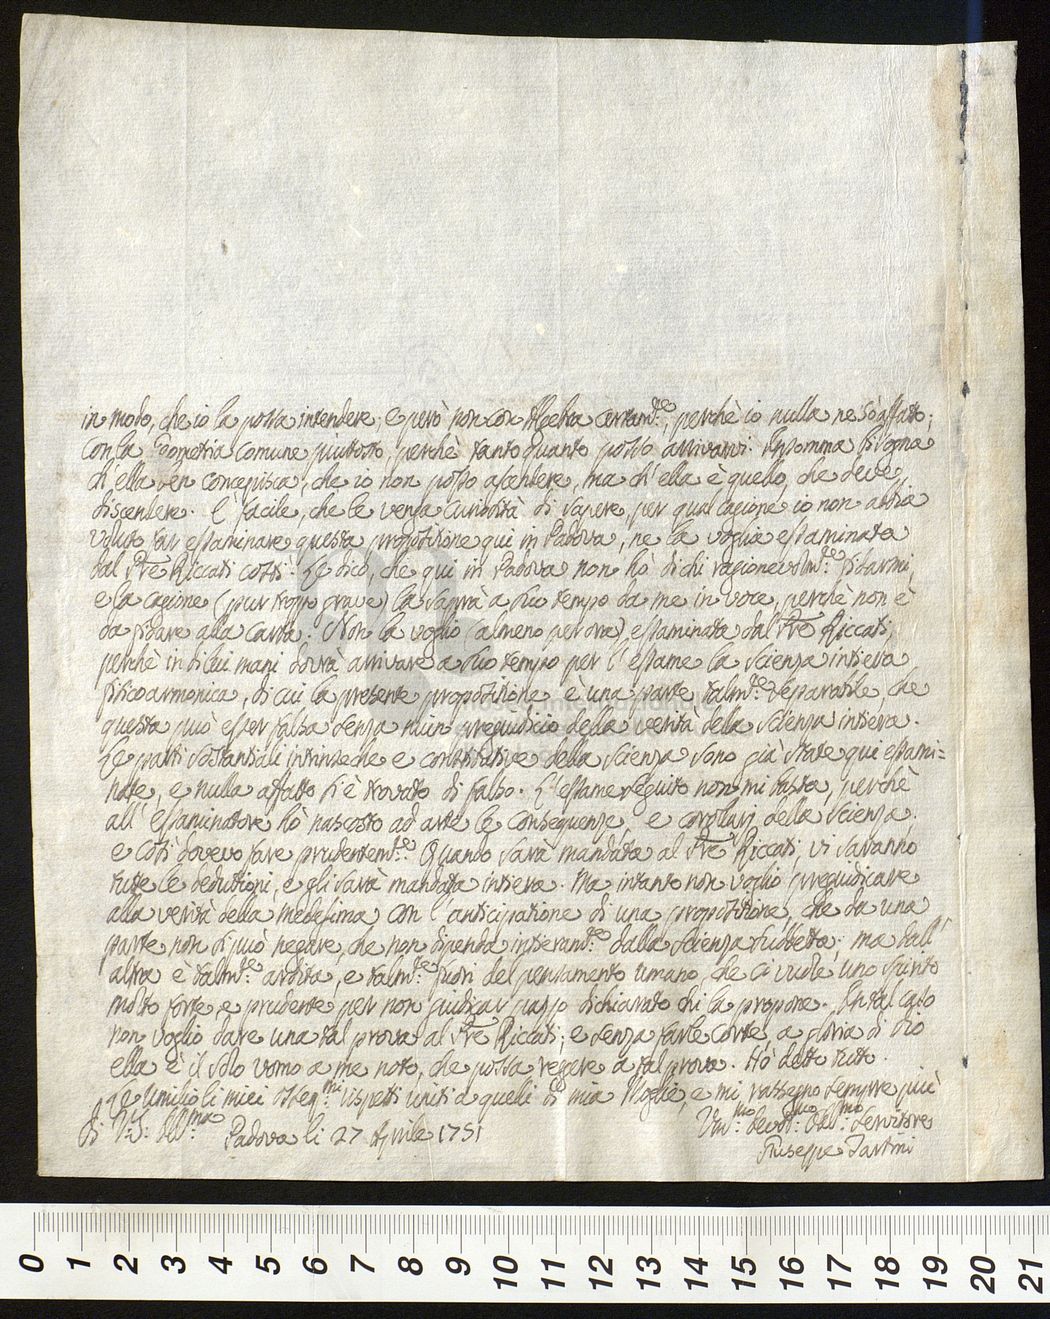 in modo, che io la possa intendere, e però non con Algebra certam.te, perchè io nulla ne sò affatto;
con la Geometria comune piuttosto, perchè tanto quanto posso arrivarvi. Insomma bisogna
ch'ella ben concepisca, che io non posso ascendere, ma ch'ella è quello, che deve
discendere. È facile, che le venga curiosità di sapere, per qual cagione io non abbia
voluto far essaminare questa propositione qui in Padova, ne la voglia essaminata
dal P̃re Riccati costì. Le dico, che qui in Padova non hò di chi ragionevolm.te fidarmi,
e la cagione (pur troppo grave) la saprà a suo tempo da me in voce, perchè non è
da fidare alla carta. Non la voglio (almeno per ora) essaminata dal P̃re Riccati,
perchè in di lui mani dovrà arrivare a suo tempo per l'essame la scienza intiera
fisicoarmonica, di cui la presente propositione è una parte talm.te separabile che
questa può esser falsa senza niun pregiudicio della verità della scienza intiera.
Le parti sostantiali intrinseche e constitutive della scienza sono già state qui essami=
nate, e nulla affatto si è trovato di falso. L'essame seguito non mi basta, perchè
all'essaminatore hò nascosto ad arte le conseguenze, e corolarj della scienza.
e così dovevo fare prudentem.te Quando sarà mandata al P̃re Riccati, vi saranno
tutte le dedutioni, e gli sarà mandata intiera. Ma intanto non voglio pregiudicare
alla verità della medesima con l'anticipatione di una propositione, che da una
parte non si può negare, che non dipenda interam.te dalla scienza suddetta; ma dall'
altra è talm.te ardita, e talm.te fuori del pensamento umano, che ci vuole uno spirito
molto forte, e prudente per non giudicar pazzo dichiarato chi la propone. In tal caso
non voglio dare una tal prova al P̃re Riccati; e senza farle corte, a gloria di Dio
ella è il solo uomo a me noto, che possa regere a tal prova. Hò detto tutto.
Le umilio li miei osseq.mi rispetti uniti a quelli di mia Moglie, e mi rassegno sempre più
di V: S: Ill.ma Padova li 27 Aprile 1751
Um.mo devot.mo obl.mo servitore
Giuseppe Tartini